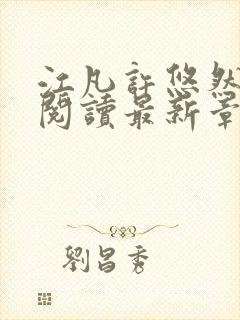 江凡許悠然
閱讀最新章
劉昌秀